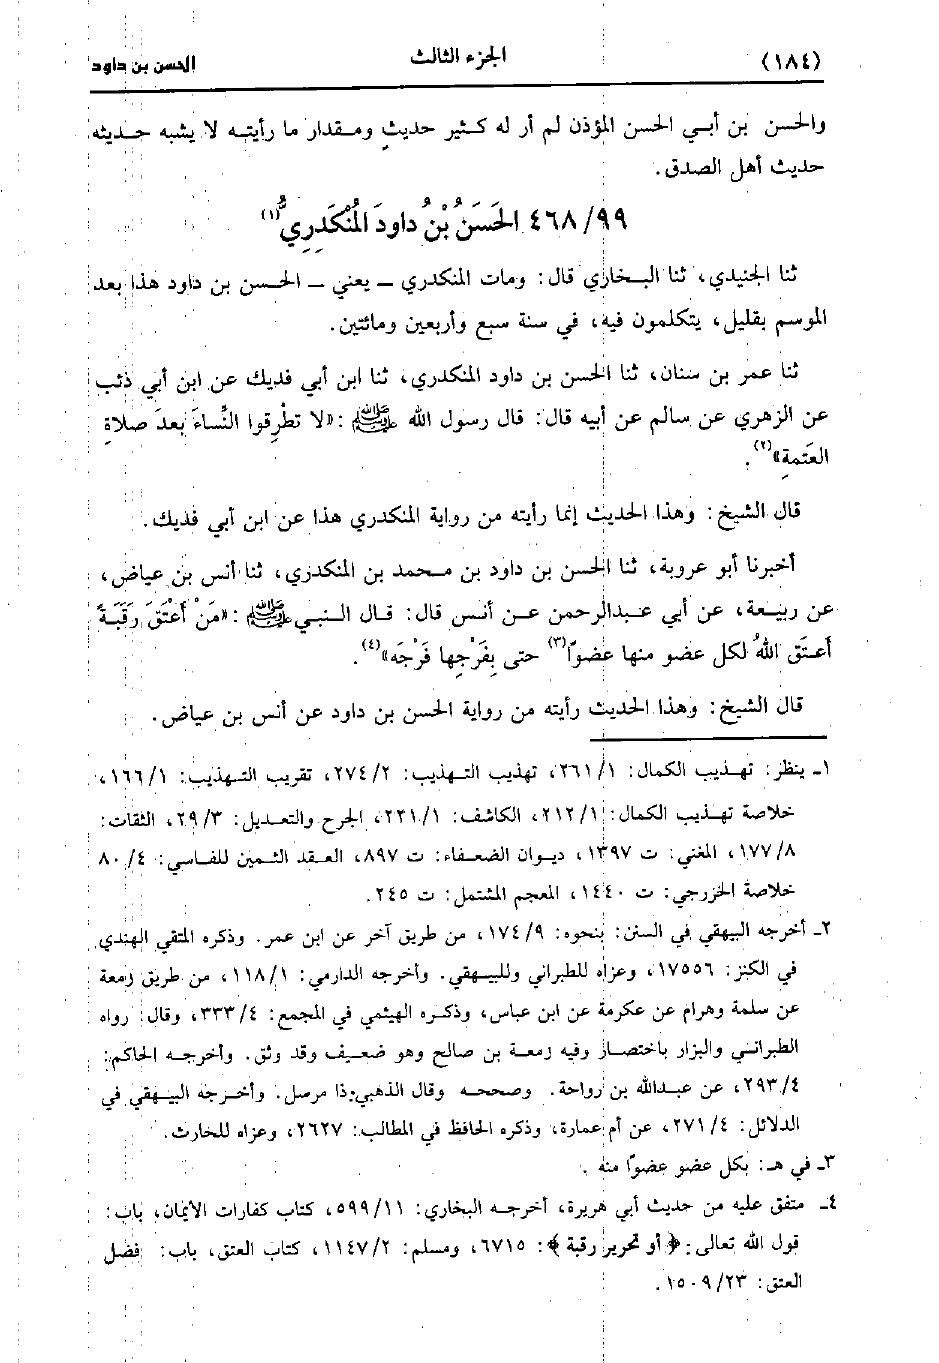 (١٨٤) الجزء الثالث الحسن بن داود
والحسن بن أبي الحسن المؤذن لم أر له كثير حديث ومقدار ما رأيته لا يشبه حديثه
حديث أهل الصدق.
٤٦٨/٩٩ الحَسَنُ بْنُ داودَ المُنْكَدِرِيُّ(١)
ثنا الجنيدي، ثنا البخاري قال: ومات المنكدري ــ يعني ــ الحسن بن داود هذا بعد
الموسم بقليل، يتكلمون فيه، في سنة سبع وأربعين ومائتين.
ثنا عمر بن سنان، ثنا الحسن بن داود المنكدري، ثنا ابن أبي فديك عن ابن أبي ذئب
عن الزهري عن سالم عن أبيه قال: قال رسول الله ﷺ: «لا تطْرِقوا النِّساءَ بعدَ صلاةِ
العَتمةِ»(٢).
قال الشيخ: وهذا الحديث إنما رأيته من رواية المنكدري هذا عن ابن أبي فديك.
أخبرنا أبو عروبة، ثنا الحسن بن داود بن محمد بن المنكدري، ثنا أنس بن عياض،
عن ربيعة، عن أبي عبدالرحمن عن أنس قال: قال النبي ﷺ: «مَنْ أَعْتَقَ رَقَبَةً
أعتَق اللهُ لكل عضو منها عضوًا(٣) حتى بِفَرْجِها فَرْجَه»(٤).
قال الشيخ: وهذا الحديث رأيته من رواية الحسن بن داود عن أنس بن عياض.
١ـ ينظر: تهذيب الكمال: ٢٦١/١، تهذيب التهذيب: ٢٧٤/٢، تقريب التهذيب: ١٦٦/١،
خلاصة تهذيب الكمال: ٢١٢/١، الكاشف: ٢٢١/١، الجرح والتعديل: ٢٩/٣، الثقات:
١٧٧/٨، المغني: ت ١٣٩٧، ديوان الضعفاء: ت ٨٩٧، العقد الثمين للفاسي: ٨٠/٤
خلاصة الخزرجي: ت ١٤٤٠، المعجم المشتمل: ت ٢٤٥.
٢ـ أخرجه البيهقي في السنن: بنحوه: ١٧٤/٩، من طريق آخر عن ابن عمر. وذكره المتقي الهندي
في الكنز: ١٧٥٥٦، وعزاه للطبراني وللبيهقي. وأخرجه الدارمي: ١١٨/١، من طريق زمعة
عن سلمة وهرام عن عكرمة عن ابن عباس، وذكره الهيثمي في المجمع: ٣٣٣/٤، وقال: رواه
الطبراني والبزار باختصار وفيه زمعة بن صالح وهو ضعيف وقد وثق. وأخرجه الحاكم:
٢٩٣/٤، عن عبدالله بن رواحة. وصححه وقال الذهبي: ذا مرسل. وأخرجه البيهقي في
الدلائل: ٢٧١/٤، عن أم عمارة، وذكره الحافظ في المطالب: ٢٦٢٧، وعزاه للحارث.
٣ـ في هـ: بكل عضو عضوًا منه.
٤ـ متفق عليه من حديث أبي هريرة، أخرجه البخاري: ٥٩٩/١١، كتاب كفارات الأيمان، باب:
قول الله تعالى: ﴿أو تحرير رقبة﴾: ٦٧١٥، ومسلم: ١١٤٧/٢، كتاب العتق، باب: فضل
العتق: ١٥٠٩/٢٣.